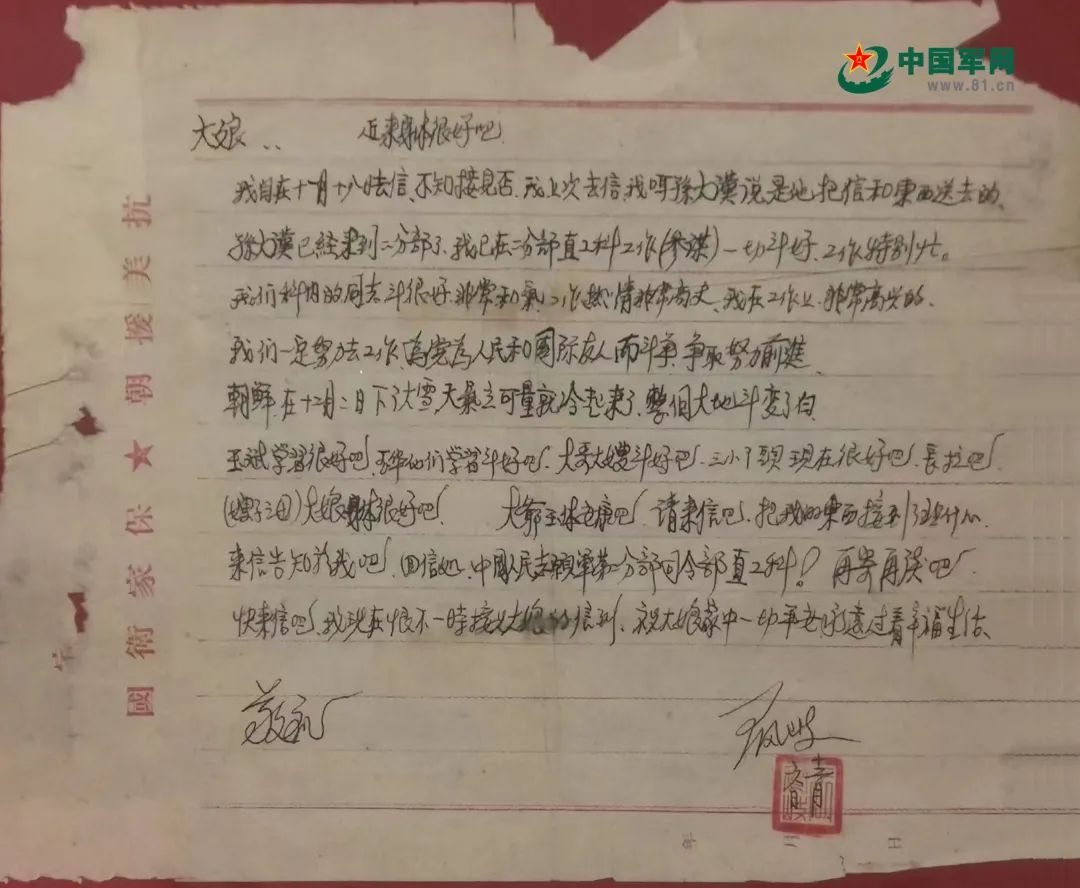 中国军网
www.81.cn
抗美援朝★保家衛國
大娘:近来身体很好吧
我自在十一月十八日去信、不知接見否、我上次去信、我叫孫大漢说是他把信和東西送去的、
孫大漢已经来到二分部了、我已在二分部直工科工作(参谋)一切斗好、工作特别忙。
我们科内的同志斗很好、非常和氣、工作热情非常高丈、我在工作上、非常高兴的、
我们一定努力去工作、為党為人民和國际友人而斗争、争取努力前進、
朝鮮在十二月二日下大雪、天氣立可量就冷起来了、整個大地斗变了白、
学習很好吧、他们学習斗好吧、大哥大嫂斗好吧、三小丫頭現在很好吧、長拉吧、
大娘身体很好吧 大爺 吧、请来信吧、把我的東西接到
来信告知於我吧、回信处、中國人民志願軍第二分部司令部直工科! 再寄再谈吧
快来信吧、我现在恨不一時接 大娘的信到、祝大娘家中一切平安永遠过着幸福生活、
敬礼
年 月 日